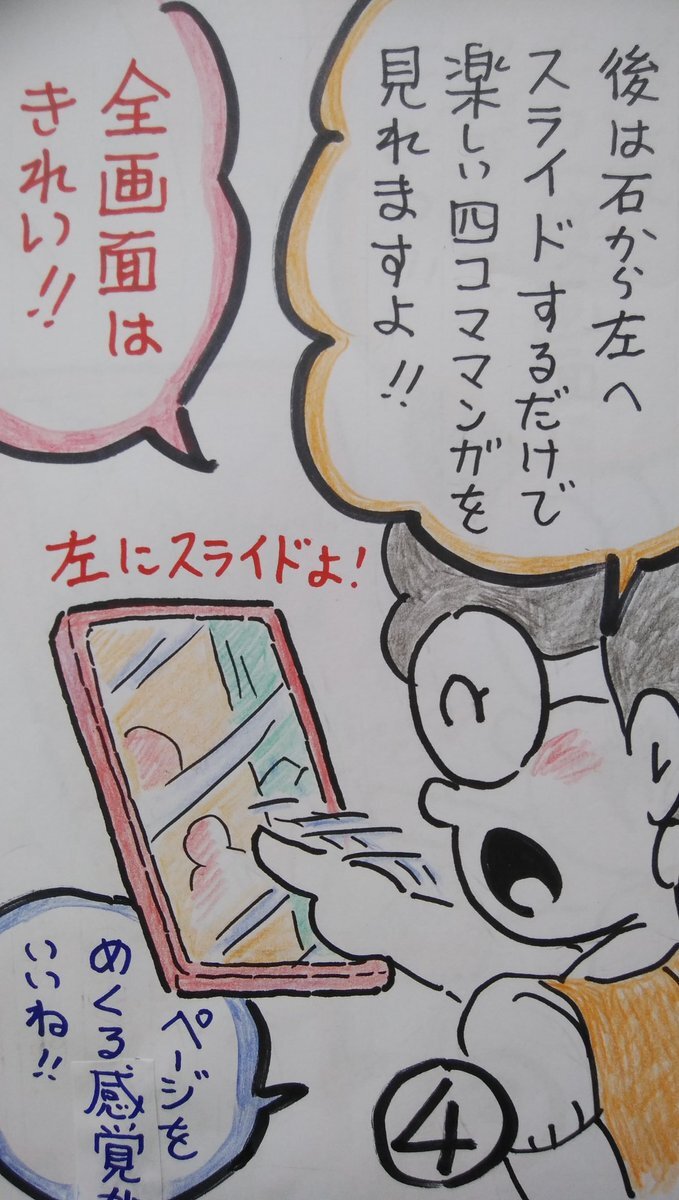 後は石から左へ
スライドするだけで
楽しい四コママンガを
見れますよ!!
全画面は
きれい!!
左にスライドよ!
ページを
めくる感覚が
いいね!!
4